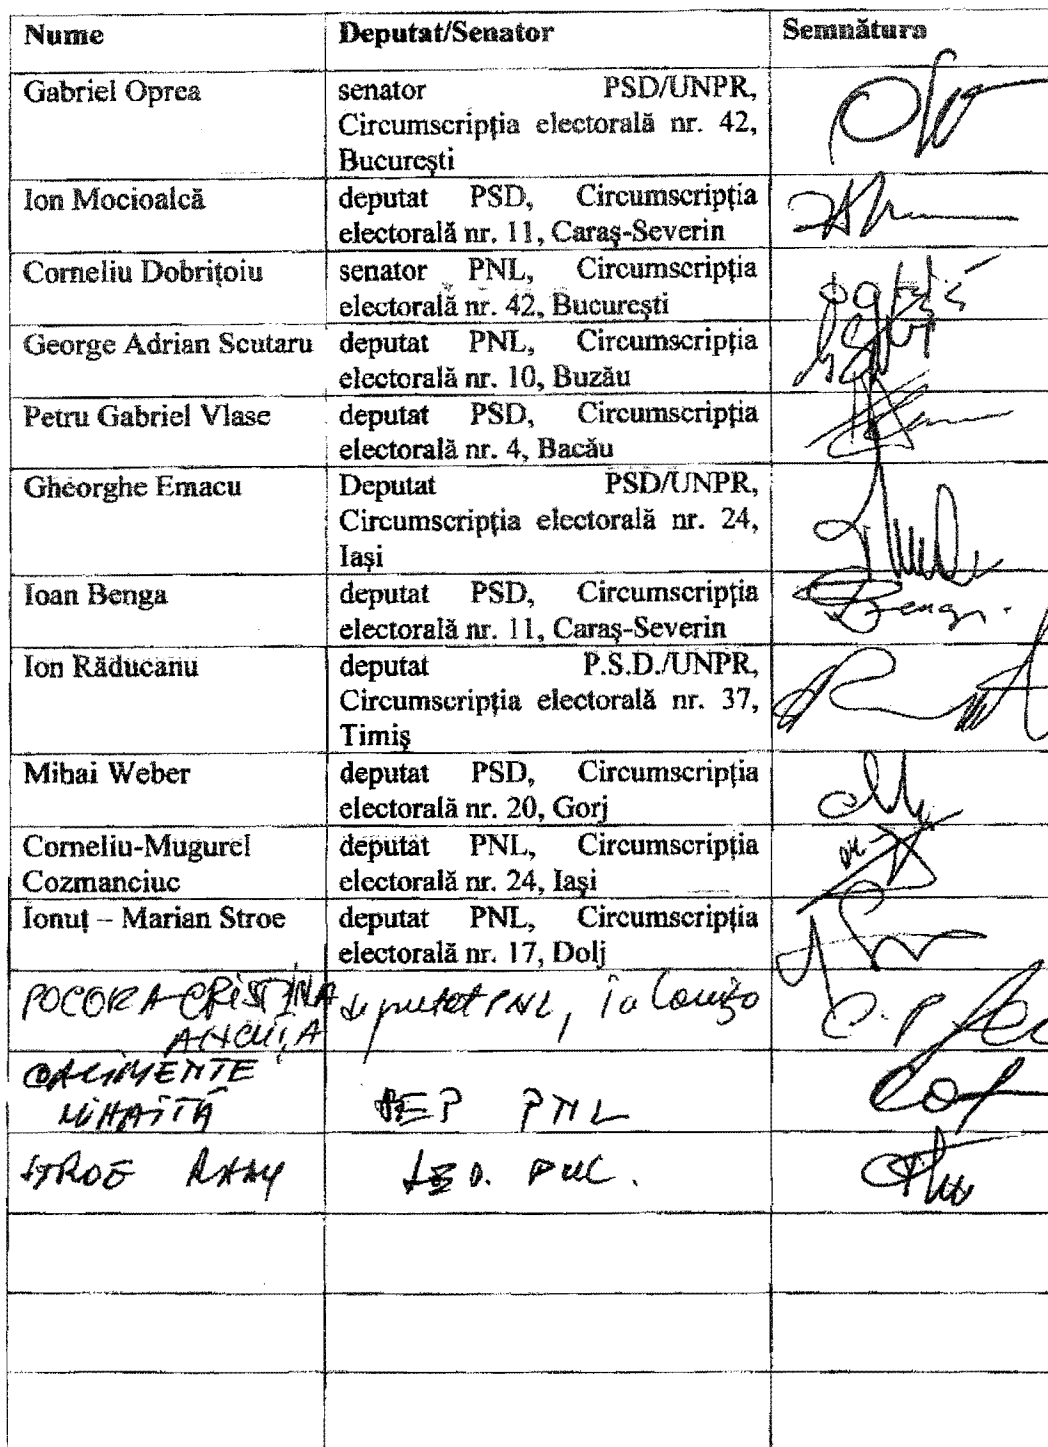 Nume Deputat/Senator Semnătura
Gabriel Oprea senator PSD/UNPR,
Circumscripția electorală nr. 42,
București
Ion Mocioalcă deputat PSD, Circumscripția
electorală nr. 11, Caraș-Severin
Corneliu Dobrițoiu senator PNL, Circumscripția
electorală nr. 42, București
George Adrian Scutaru deputat PNL, Circumscripția
electorală nr. 10, Buzău
Petru Gabriel Vlase deputat PSD, Circumscripția
electorală nr. 4, Bacău
Gheorghe Emacu Deputat PSD/UNPR,
Circumscripția electorală nr. 24,
Iași
Ioan Benga deputat PSD, Circumscripția
electorală nr. 11, Caraș-Severin
Benga
Ion Răducanu deputat P.S.D./UNPR,
Circumscripția electorală nr. 37,
Timiș
Mihai Weber deputat PSD, Circumscripția
electorală nr. 20, Gorj
Corneliu-Mugurel deputat PNL, Circumscripția
Cozmanciuc electorală nr. 24, Iași
Ionuț – Marian Stroe deputat PNL, Circumscripția
electorală nr. 17, Dolj
POCORA CRISTINA deputat PNL, Ialomița
ANCUȚA
CALIMENTE
MIHĂIȚĂ DEP PNL
STROE DEP. PNL.